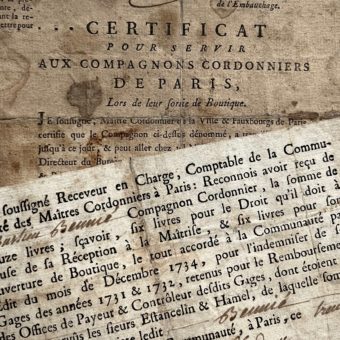 de l'Embauchage.
CERTIFICAT
POUR SERVIR
AUX COMPAGNONS CORDONNIERS
DE PARIS,
Lors de leur sortie de Boutique.
JE soussigné, Maître Cordonnier à la Ville & Fauxbourgs de Paris
certifie que le Compagnon ci-dessus dénommé, a
jusqu'à ce jour, & peut aller chez
Directeur du Bureau
soussigné Receveur en Charge, Comptable de la Commu-
té des Maîtres Cordonniers à Paris: Reconnois avoir reçu de
Compagnon Cordonnier, la somme de
uze livres; sçavoir, six livres pour le Droit qu'il doit à
use de sa Réception à la Maîtrise, & six livres pour so
uverture de Boutique, le tout accordé à la Communauté pa
dit du mois de Décembre 1734, pour l'indemniser de
Gages des années 1731 & 1732, retenus pour le Remboursem
des Offices de Payeur & Contrôleur desdits Gages, dont étoien
us les sieurs Estancelin & Hamel, de laquelle som
ledit
mmunauté, à Paris, ce